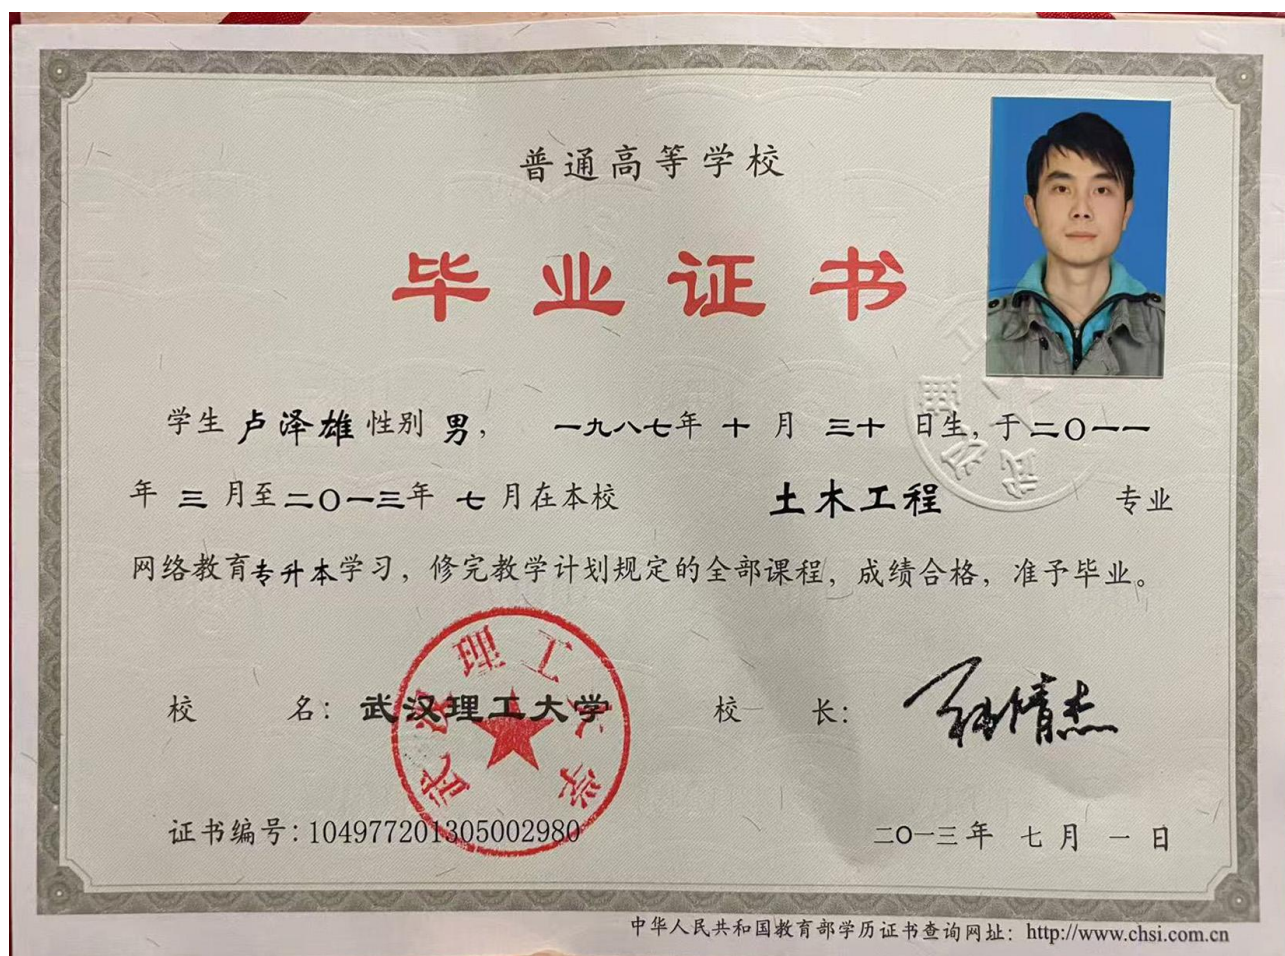 普通高等学校
毕业证书
学生 卢泽雄 性别 男， 一九八七年 十 月 三十 日生，于二〇一一
年 三 月至二〇一三年 七 月在本校 土木工程 专业
网络教育专升本学习，修完教学计划规定的全部课程，成绩合格，准予毕业。
校 名：武汉理工大学 校 长：
武汉理工大学
武汉理工
证书编号：104977201305002980 二〇一三年 七月 一日
中华人民共和国教育部学历证书查询网址：http://www.chsi.com.cn